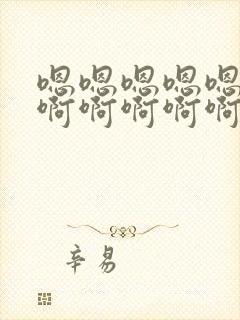 嗯嗯嗯嗯嗯
啊啊啊啊啊
辛易